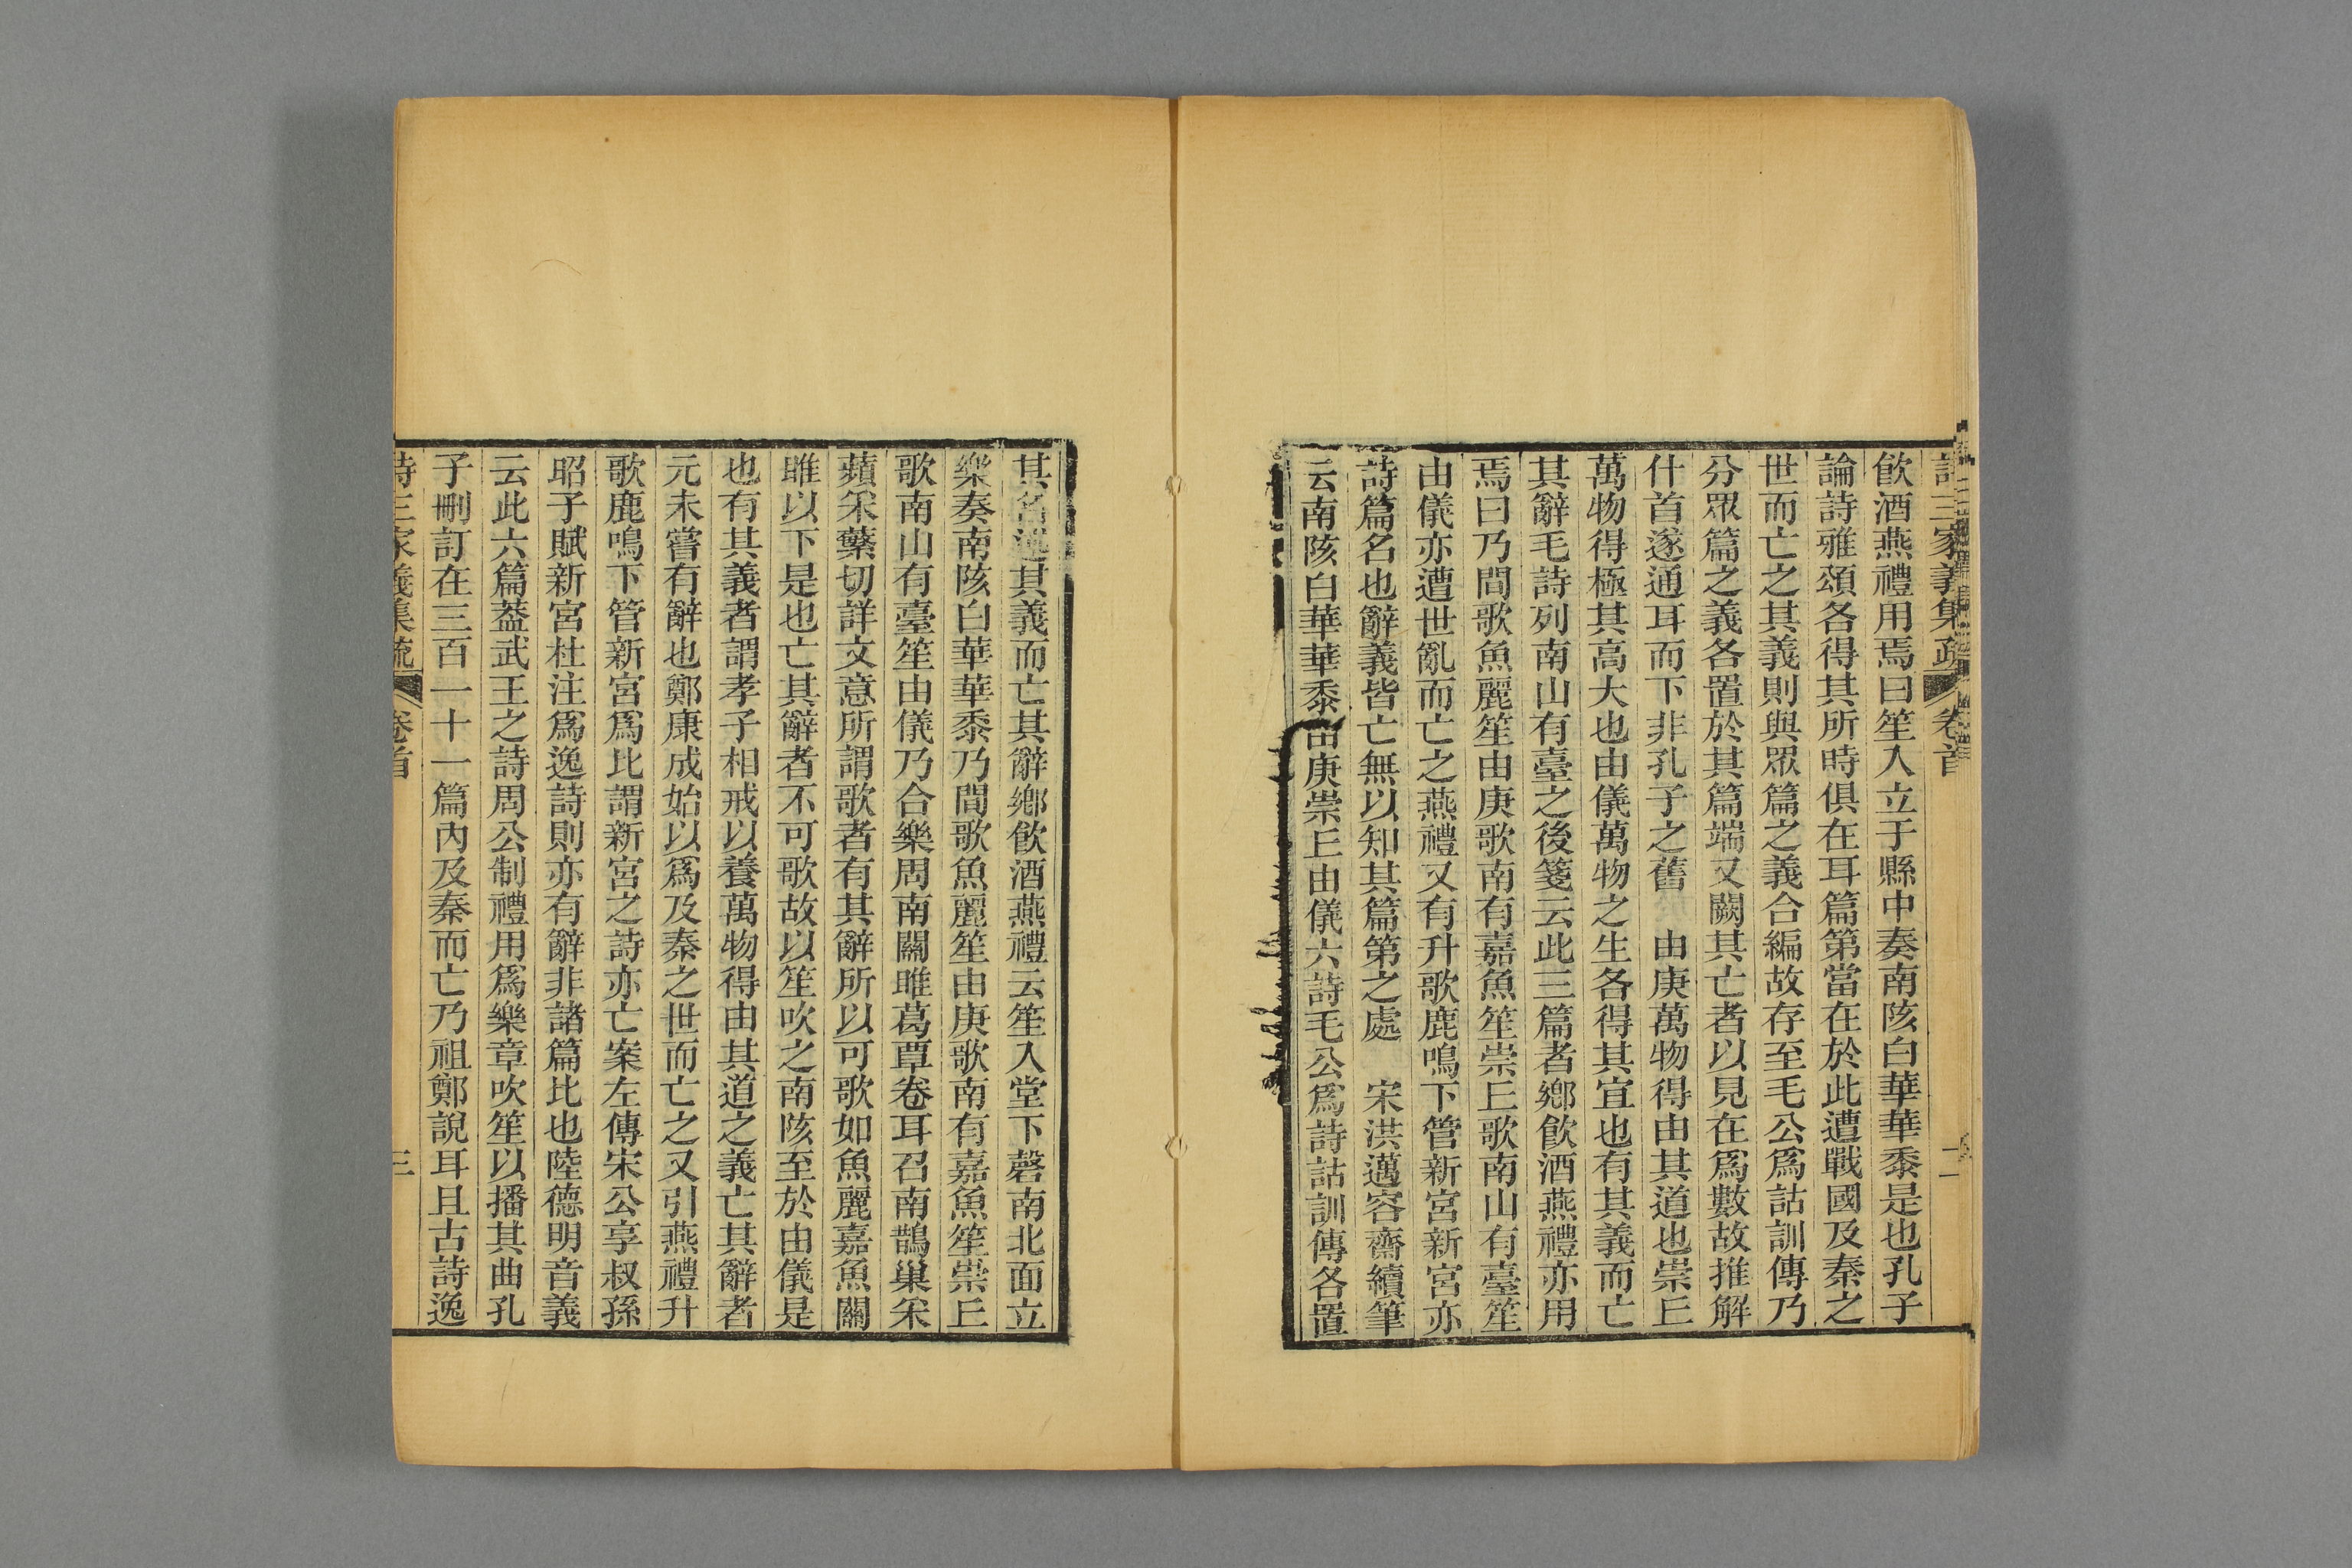 詩三家義集疏 卷首 二
飲酒燕禮用焉曰笙入立于縣中奏南陔白華華黍是也孔子
論詩雅頌各得其所時俱在耳篇第當在於此遭戰國及秦之
世而亡之其義則與眾篇之義合編故存至毛公爲詁訓傳乃
分眾篇之義各置於其篇端又闕其亡者以見在爲數故推解
什首遂通耳而下非孔子之舊　由庚萬物得由其道也崇丘
萬物得極其高大也由儀萬物之生各得其宜也有其義而亡
其辭毛詩列南山有臺之後箋云此三篇者鄉飲酒燕禮亦用
焉曰乃間歌魚麗笙由庚歌南有嘉魚笙崇丘歌南山有臺笙
由儀亦遭世亂而亡之燕禮又有升歌鹿鳴下管新宮新宮亦
詩篇名也辭義皆亡無以知其篇第之處　宋洪邁容齋續筆
云南陔白華華黍由庚崇丘由儀六詩毛公爲詩詁訓傳各置
其名述其義而亡其辭鄉飲酒燕禮云笙入堂下磬南北面立
樂奏南陔白華華黍乃間歌魚麗笙由庚歌南有嘉魚笙崇丘
歌南山有臺笙由儀乃合樂周南關雎葛覃卷耳召南鵲巢采
蘋采蘩切詳文意所謂歌者有其辭所以可歌如魚麗嘉魚關
雎以下是也亡其辭者不可歌故以笙吹之南陔至於由儀是
也有其義者謂孝子相戒以養萬物得由其道之義亡其辭者
元未嘗有辭也鄭康成始以爲及秦之世而亡之又引燕禮升
歌鹿鳴下管新宮爲比謂新宮之詩亦亡案左傳宋公享叔孫
昭子賦新宮杜注爲逸詩則亦有辭非諸篇比也陸德明音義
云此六篇葢武王之詩周公制禮用爲樂章吹笙以播其曲孔
子刪訂在三百一十一篇內及秦而亡乃祖鄭說耳且古詩逸
詩三家義集疏 卷首 三